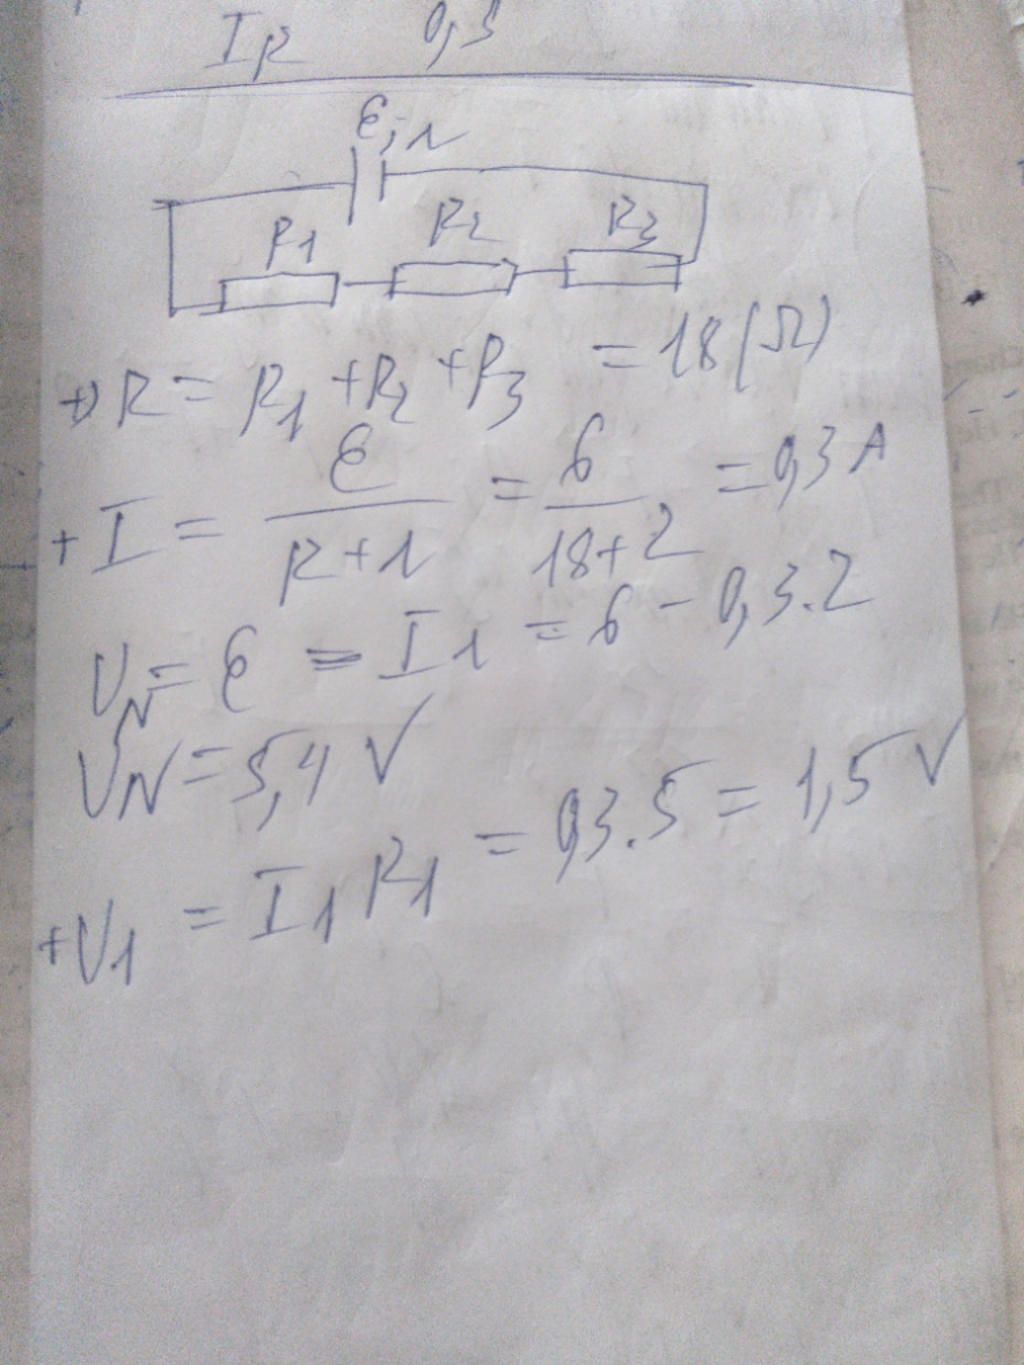 IR 0,3
ε; r
R1 R2 R3
+) R = R1 + R2 + R3 = 18 (Ω)
+ I = ε / (R + r) = 6 / (18 + 2) = 0,3 A
UN = ε - Ir = 6 - 0,3.2
UN = 5,4 V
+ U1 = I1 R1 = 0,3.5 = 1,5 V